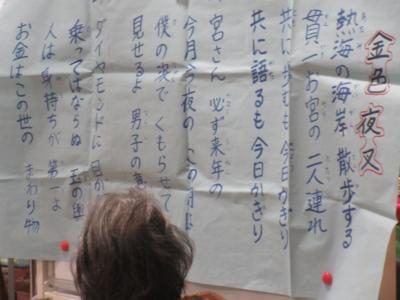 金色夜叉
熱海の海岸 散歩する
貫一お宮の 二人連れ
共に歩むも 今日かぎり
共に語るも 今日かぎり
宮さん 必ず来年の
今月今夜の この月は
僕の涙で くもらせて
見せるよ 男子の意
ダイヤモンドに 目が
乗ってはならぬ 玉の輿
人は身持ちが 第一よ
お金はこの世の まわり物